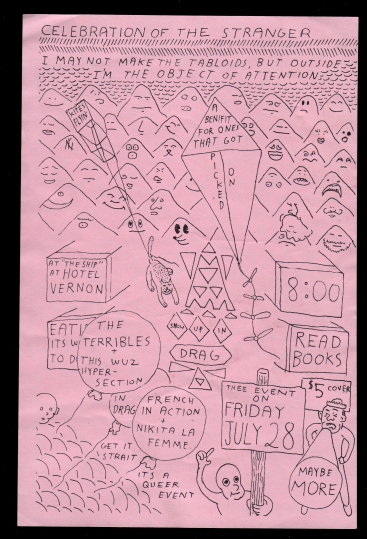 CELEBRATION OF THE STRANGER
I MAY NOT MAKE THE TABLOIDS, BUT OUTSIDE
I'M THE OBJECT OF ATTENTION
KITEY
FLYIN
A
BENIFIT
FOR ONES
THAT GOT
PICKED
ON
AT "THE SHIP"
AT HOTEL
VERNON
8:00
EATI
ITS W
TO D
THE
TERRIBLES
+
THIS WUZ
HYPER-
SECTION
SHOW UP IN
DRAG
READ
BOOKS
IN
DRAG
FRENCH
IN ACTION
+
NIKITA LA
FEMME
GET IT
STRAIT
IT'S A
QUEER
EVENT
THEE EVENT
ON
FRIDAY
JULY 28
$5 COVER
MAYBE
MORE